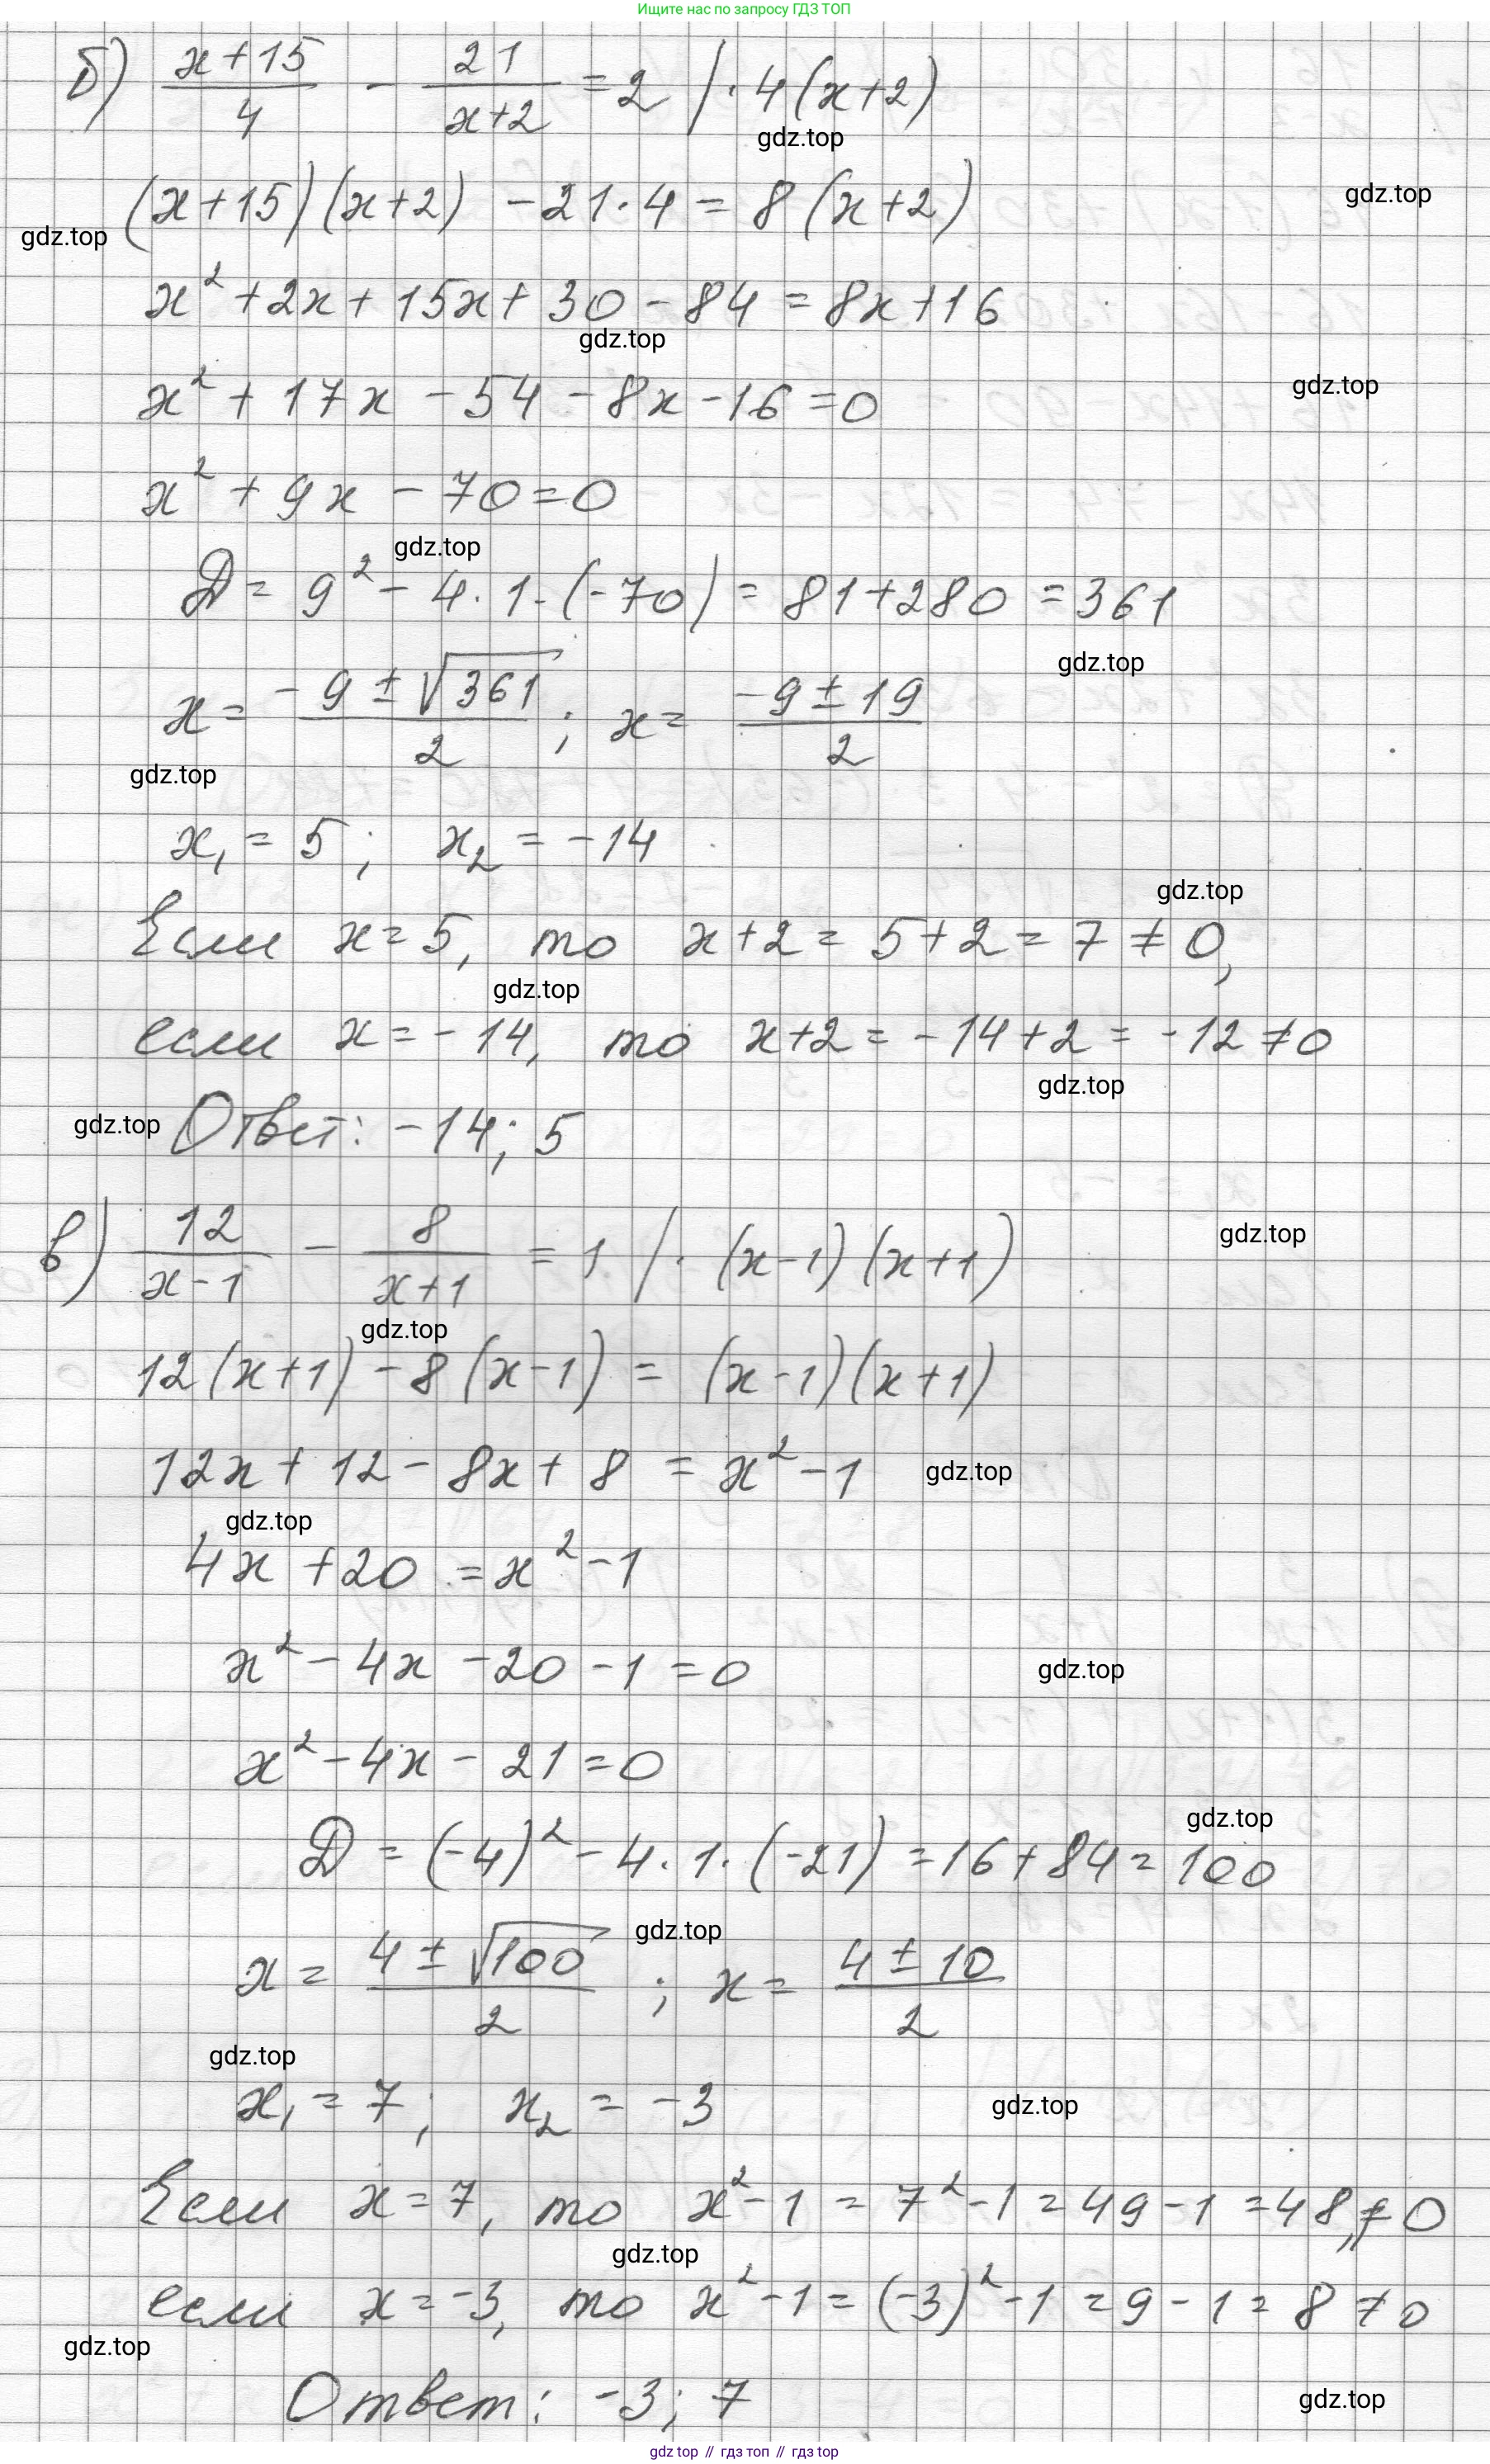 Ищите нас по запросу ГДЗ ТОП
б) (x+15)/4 - 21/(x+2) = 2 | · 4(x+2)
gdz.top
(x+15)(x+2) - 21·4 = 8(x+2)
gdz.top
gdz.top
x² + 2x + 15x + 30 - 84 = 8x + 16
gdz.top
x² + 17x - 54 - 8x - 16 = 0
gdz.top
x² + 9x - 70 = 0
gdz.top
D = 9² - 4·1·(-70) = 81 + 280 = 361
gdz.top
x = (-9 ± √361)/2 ; x = (-9 ± 19)/2
gdz.top
x₁ = 5 ; x₂ = -14
gdz.top
Если x = 5, то x+2 = 5+2 = 7 ≠ 0,
gdz.top
если x = -14, то x+2 = -14+2 = -12 ≠ 0
gdz.top
gdz.top
Ответ: -14; 5
в) 12/(x-1) - 8/(x+1) = 1 | · (x-1)(x+1)
gdz.top
gdz.top
12(x+1) - 8(x-1) = (x-1)(x+1)
12x + 12 - 8x + 8 = x² - 1
gdz.top
gdz.top
4x + 20 = x² - 1
x² - 4x - 20 - 1 = 0
gdz.top
x² - 4x - 21 = 0
gdz.top
D = (-4)² - 4·1·(-21) = 16 + 84 = 100
gdz.top
x = (4 ± √100)/2 ; x = (4 ± 10)/2
gdz.top
x₁ = 7 ; x₂ = -3
gdz.top
Если x = 7, то x² - 1 = 7² - 1 = 49 - 1 = 48, ≠ 0
gdz.top
если x = -3, то x² - 1 = (-3)² - 1 = 9 - 1 = 8 ≠ 0
gdz.top
Ответ: -3; 7
gdz.top
gdz top // гдз топ // гдз top